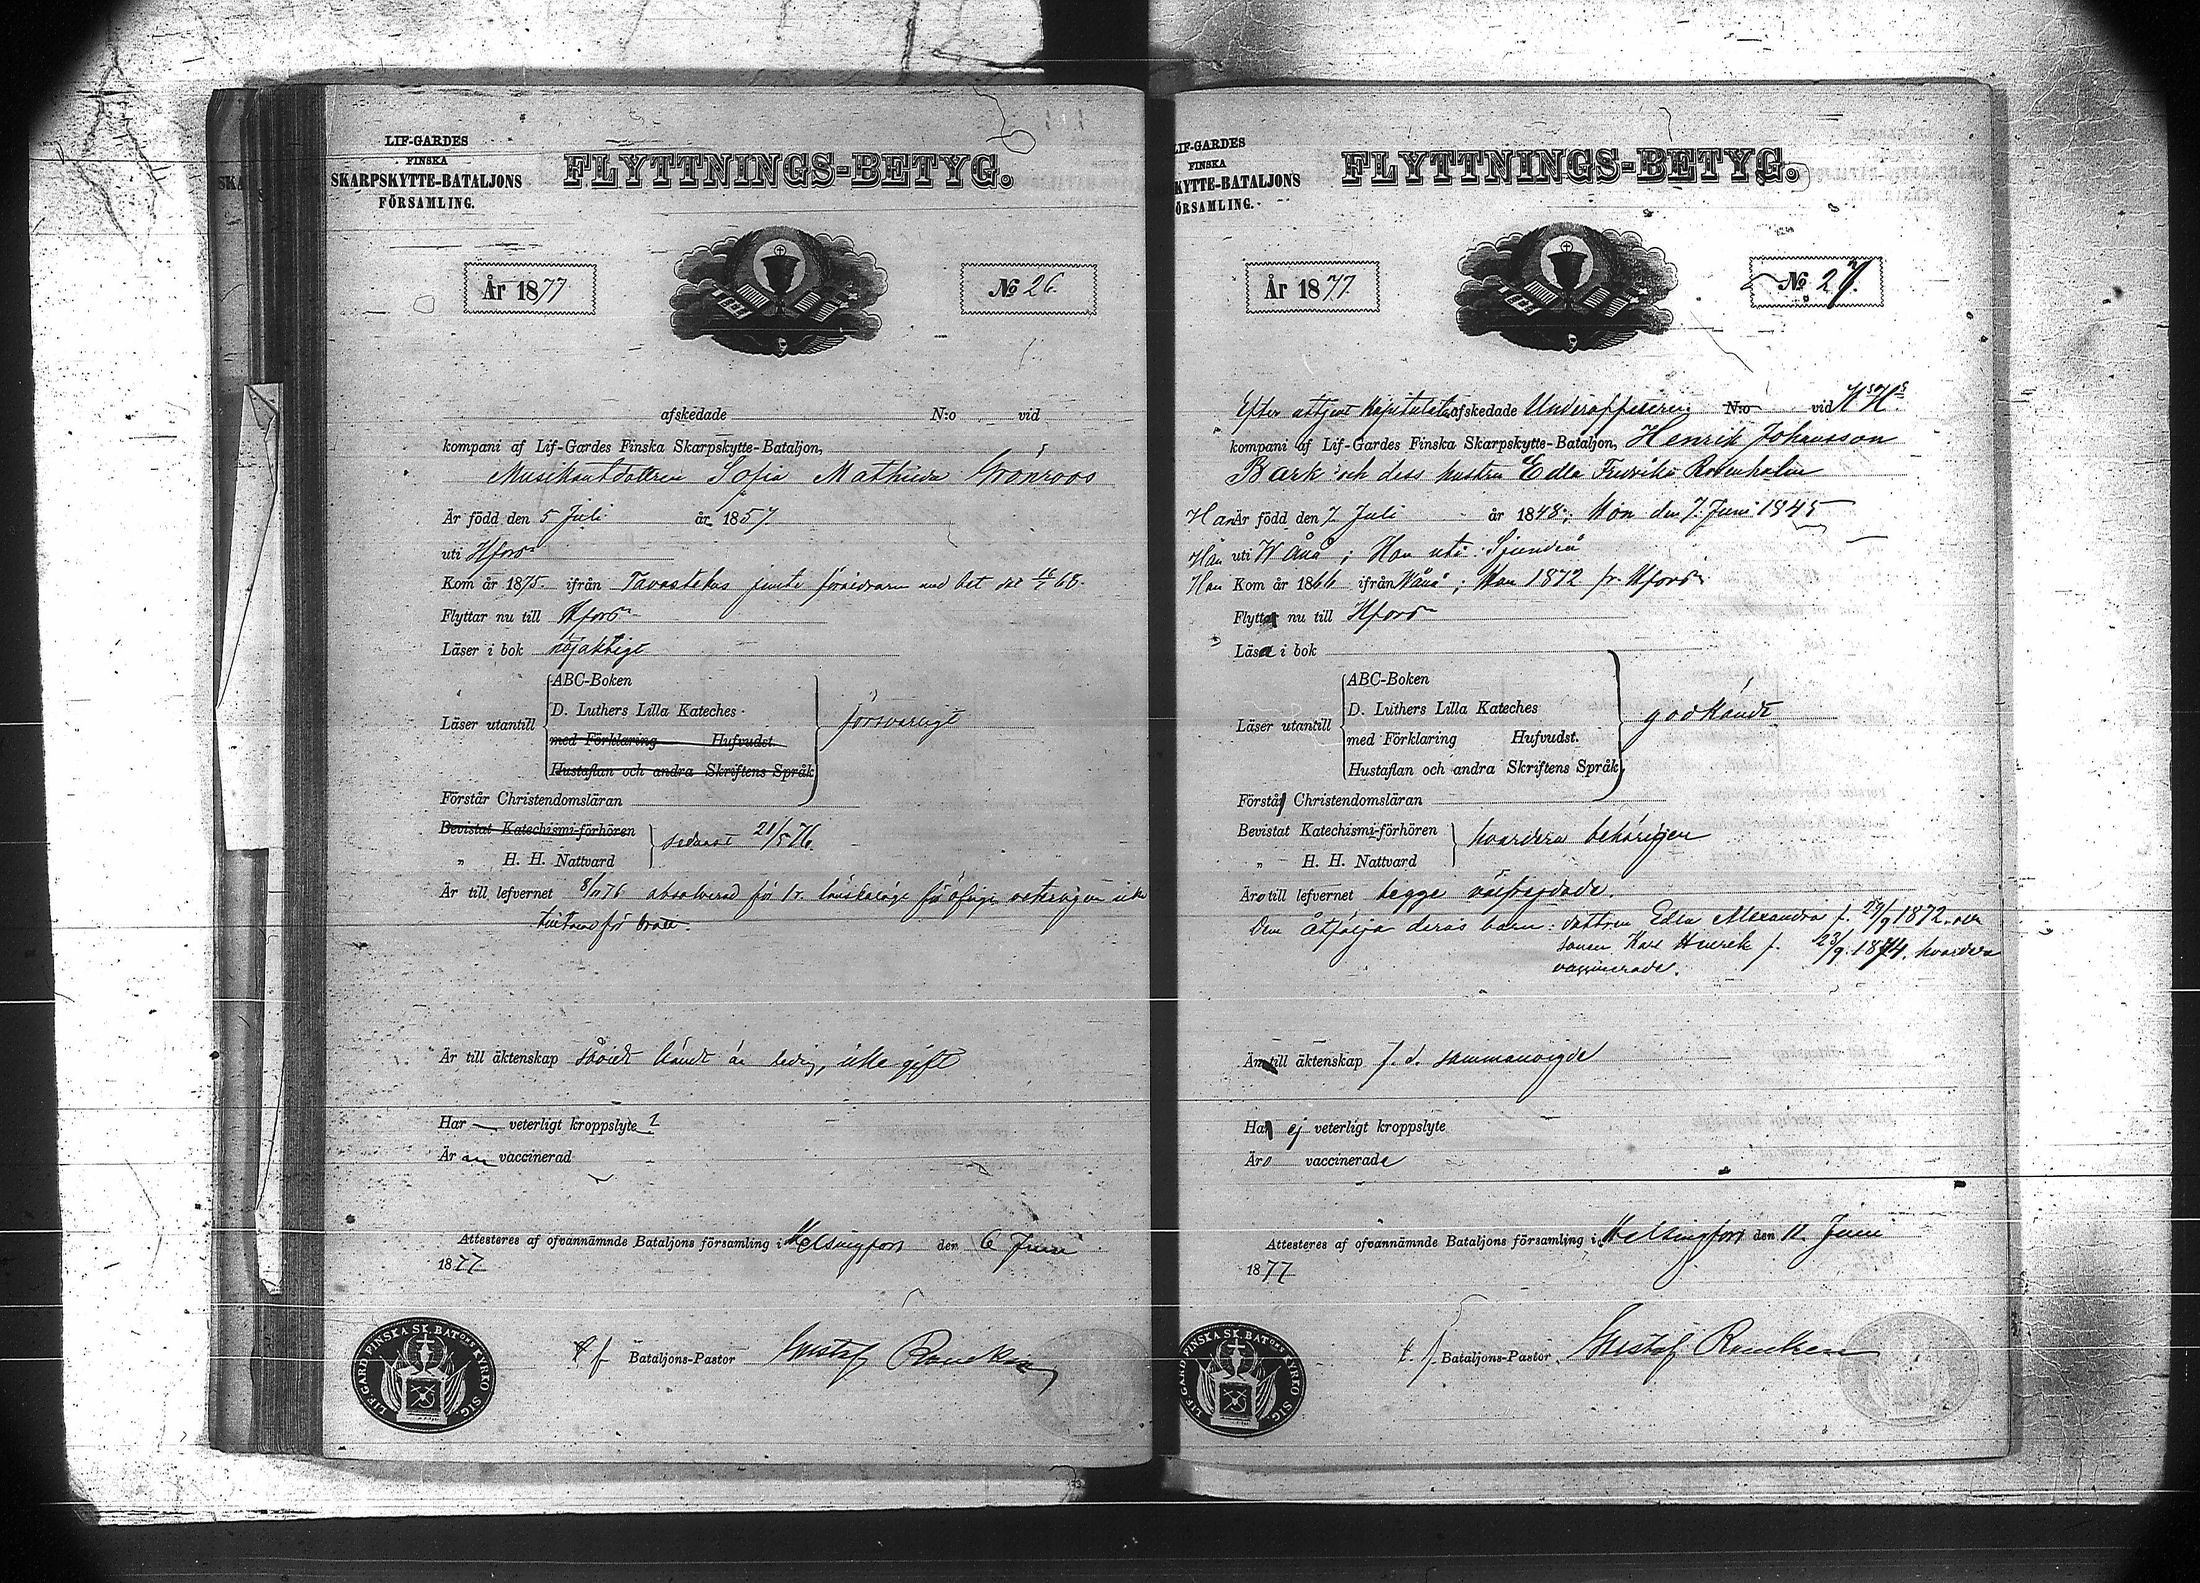 LIF-GARDES
FINSKA
SKARPSKYTTE-BATALJONS
FÖRSAMLING.
FLYTTNINGS-BETYG.
År 1877
No 26
afskedade N:o vid
kompani af Lif-Gardes Finska Skarpskytte-Bataljon,
Musikantdottren Sofia Mathilda Grönroos
Är född den 5 Juli år 1857
uti Hfors
Kom år 1875 ifrån Tavastehus jemte föräldrarne med bet
Flyttar nu till Hfors
Läser i bok nöjaktigt
ABC-Boken
D. Luthers Lilla Kateches
Läser utantill försvarligt
med Förklaring Hufvudst.
Hustaflan och andra Skriftens Språk
Förstår Christendomsläran
Bevistat Katechismi-förhören
senast 21/5 76.
„ H. H. Nattvard
Är till lefvernet absolverad för 1r. lönskaläge för öfrigt veterligen icke
för brott.
Är till äktenskap såvidt kändt är ledig, icke gift
Har — veterligt kroppslyte
Är vaccinerad
Attesteres af ofvannämnde Bataljons församling i Helsingfors den 6 Juni
1877
t. f. Bataljons-Pastor Gustaf Rancken
LIF.GARD FINSKA SK. BAT:ONS KYRKO SIG.
LIF-GARDES
FINSKA
KYTTE-BATALJONS
ÖRSAMLING.
FLYTTNINGS-BETYG.
År 1877
No 27.
Efter uttjent Kapitulat. afskedade Underofficeren N:o vid H.s H.s
kompani af Lif-Gardes Finska Skarpskytte-Bataljon, Henrik Johansson
Bark och dess hustru Edla Fredrika Rosenholm
Han Är född den 7 Juli år 1848; Hon den 7 Juni 1845
Han uti Wånå; Hon uti Sjundeå
Han Kom år 1866 ifrån Wånå; Hon 1872 fr. Hfors
Flytta nu till Hfors
Läsa i bok
ABC-Boken
D. Luthers Lilla Kateches
Läser utantill godkändt
med Förklaring Hufvudst.
Hustaflan och andra Skriftens Språk
Förstå Christendomsläran
Bevistat Katechismi-förhören
hvardera behörigen
„ H. H. Nattvard
Äro till lefvernet begge välfrejdade.
Dem åtfölja deras barn: dottren Edla Alexandra f. 29/9 1872. och
sonen Karl Henrik f. 23/9. 1874, hvardera
vaccinerade.
Äro till äktenskap f. d. sammanvigde
Ha ej veterligt kroppslyte
Äro vaccinerade
Attesteres af ofvannämnde Bataljons församling i Helsingfors den 11 Juni
1877
t. f. Bataljons-Pastor Gustaf Rancken
LIF.GARD FINSKA SK. BAT:ONS KYRKO SIG.